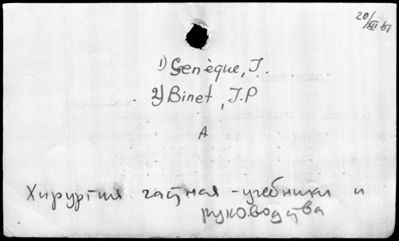 20/XII 61
1) Senèque, J.
2) Binet, J.P
A
Хирургия частная - учебники и
руководства